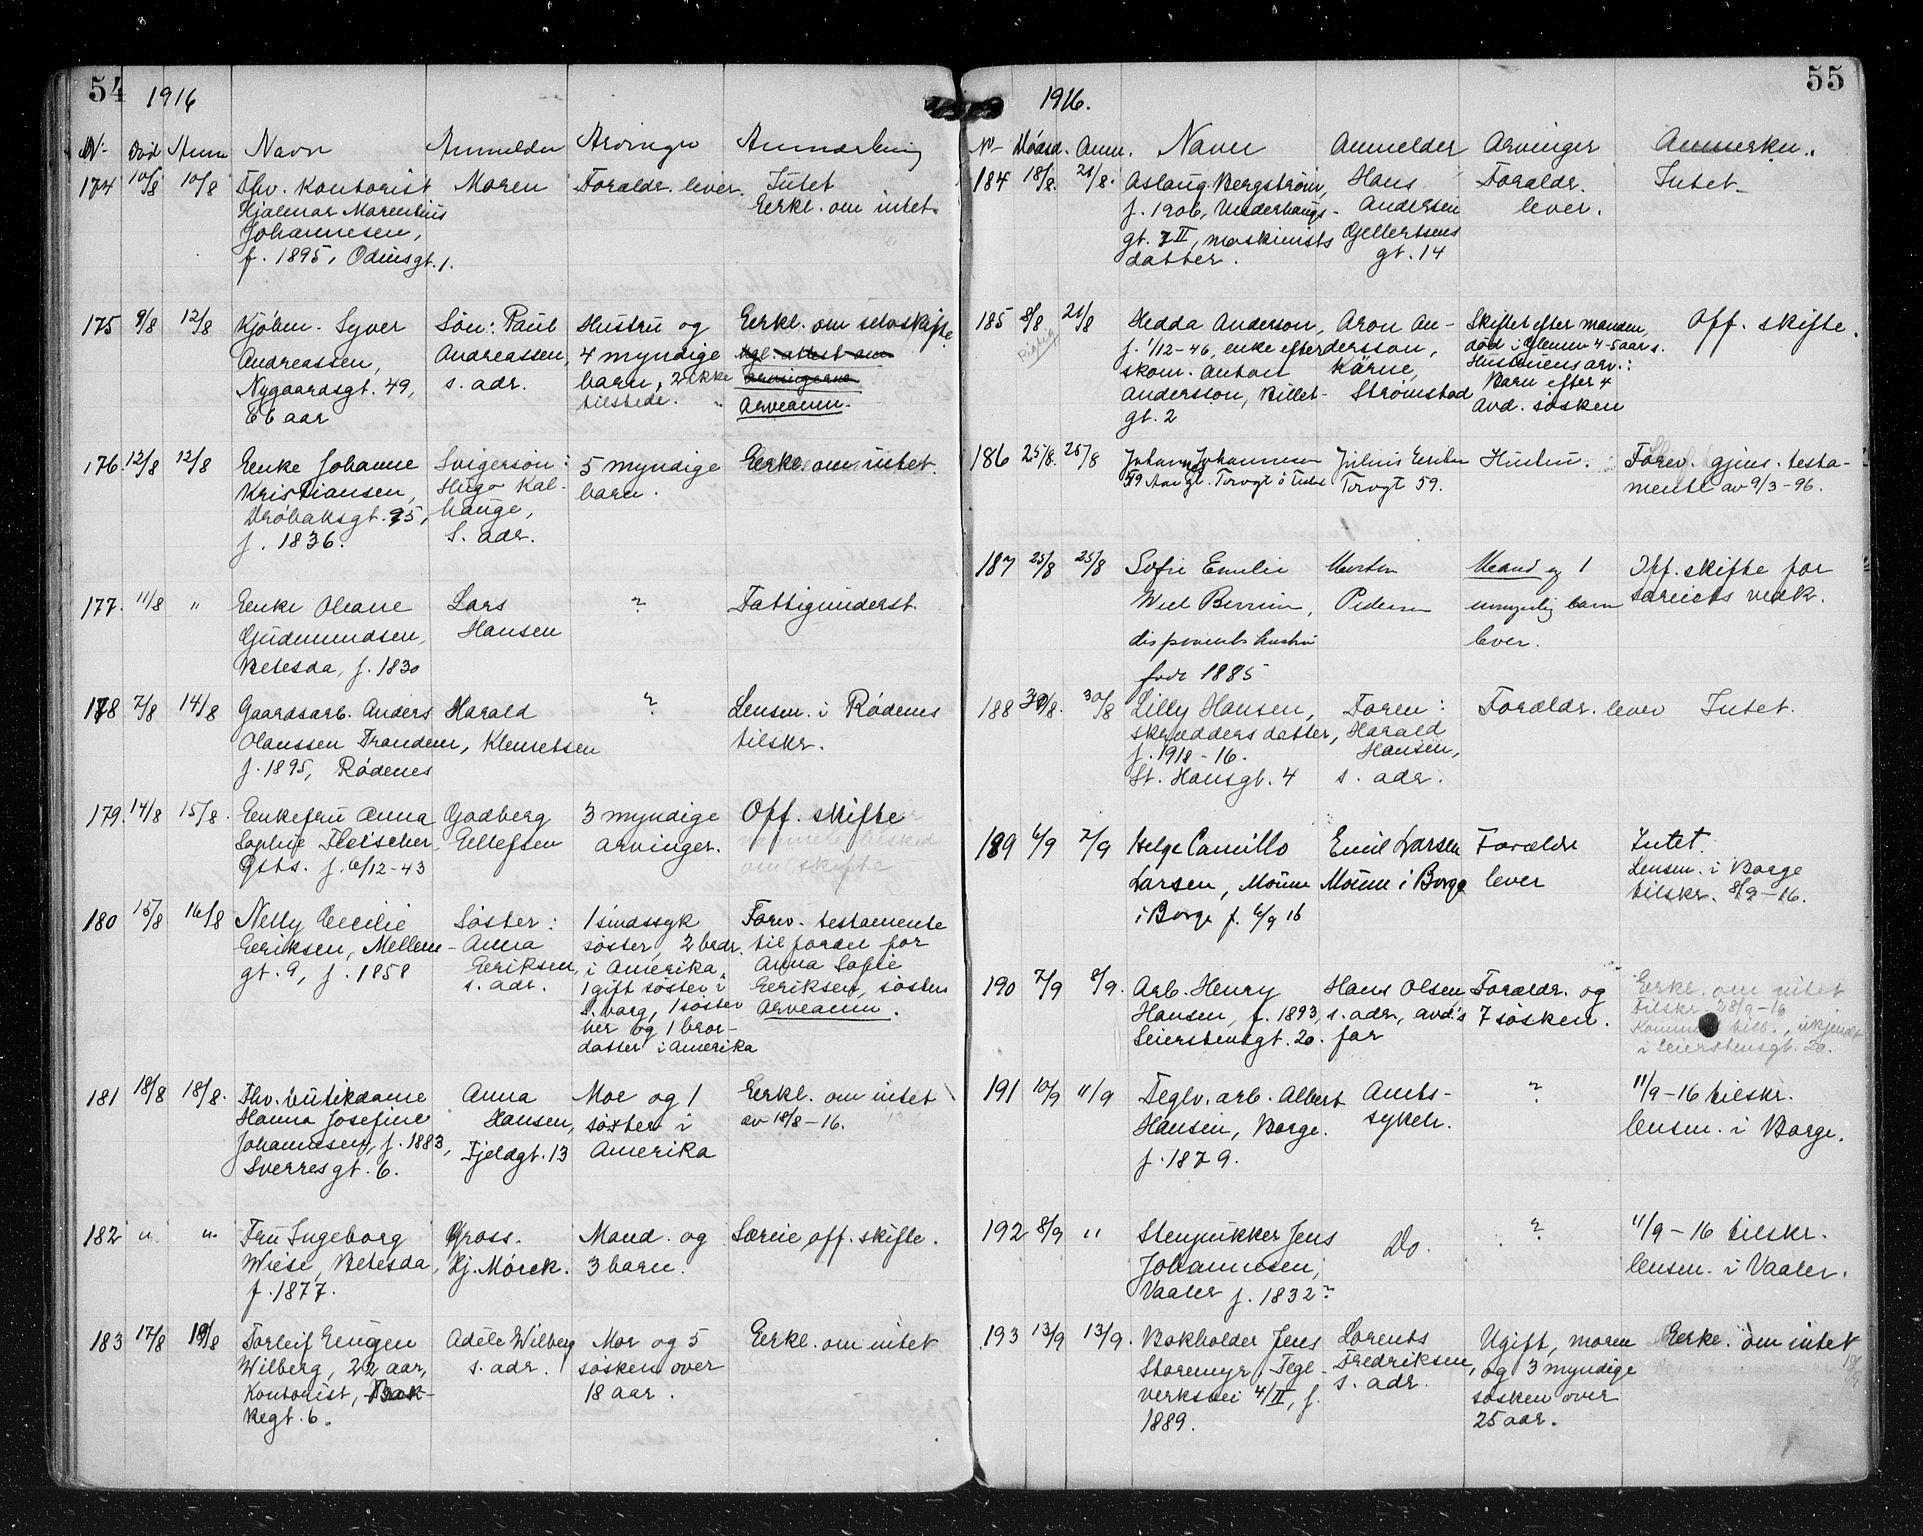 54
1916
Nr. Död Anm Navn Anmelder Arvinger Anmærkning
174 10/8 10/8 Fhv. Kontorist Moren Forældr. lever. Intet
Hjalmar Marentius Erkl. om intet.
Johannesen,
f. 1895, Odinsgt. 1.
175 9/8 12/8 Kjøbm. Syver Søn: Paul Hustru og Erkl. om selvskifte
Andreassen, Andreassen, 4 myndige Mgl. attest om
Nygaardsgt. 49, s. adr. barn, 2 ikke arvingerne
66 aar tilstede. Arveanm.
176. 12/8 12/8 Enke Johanne Svigersøn: 5 myndige Erkl. om intet.
Kristiansen, Hugo Kal- barn.
Drøbaksgt. 95, hauge,
f. 1836. s. adr.
177. 11/8 " Enke Oleane Lars ? Fattigunderst.
Gudmundsen, Hansen
Betesda, f. 1830
178 7/8 14/8 Gaardsarb. Anders Harald ? Lensm. i Rødenes
Olaussen Trandem, Klemetsen tilskr.
f. 1895, Rødenes
179. 14/8 15/8. Enkefru Anna Godberg 3 myndige Off. skifte
Sophie Fleischer, Ellefsen arvinger.
Gsts. f. 6/12-43 om skifte
180 15/8 16/8 Nelly Cecilie Søster: 1 sindssyk Forv. testamente
Eeriksen, Mellem- Anna søster, 2 brdr. til fordel for
gt. 9, f. 1858 Eeriksen, i Amerika, Anna Sofie
s. adr. 1 gift søster i Eeriksen, søster
S.borg, 1 søster Arveanm.
her og 1 bror-
datter i Amerika
181 18/8 18/8. Fhv. butikdame Anna Moe og 1 Erkl. om intet
Hanna Josefine Hansen, søster i av 18/8-16.
Johannesen, f. 1883, Fjeldgt. 13 Amerika
Sverresgt. 6.
182 " " Fru Ingeborg Gross. Mand og Særeie off. skifte.
Wiese, Betesda, Hj. Mørck. 3 barn.
f. 1877.
183 17/8 19/8 Torleif Eugen Adele Wilberg Mor og 5 Erkl. om intet
Wilberg, 22 aar, s. adr. søsken over
Kontorist, Bak- 18 aar.
kegt. 6.
55
1916.
Nr. Dødsd. Anm. Navn Anmelder Arvinger Anmerkn.
184 18/8. 21/8. Aslaug Bergstrøm, Hans Forældr. Intet
f. 1906, Underhaugs- Andersen lever.
gt. 7 II, maskinists Gellertsens
datter. gt. 14
185 8/8 21/8 Hedda Anderson, Aron An- Skiftet efter manden, Off. skifte.
f. 1/12-46, enke efter dersson, død i Glemm. 4-5 aar s.
skom. Anton Kärne, Hustruens arv.:
Andersson, Billet- Strømstad Barn efter 4
gt. 2 Avd. søsken
186 25/8. 25/8 Johan Johannesen Julius Hustru. Forev. gjens. testa-
59 aar gl. Torvgt 6 Torvgt 59. mente av 9/3-96.
187 25/8 25/8 Sofie Emilie Morten Mand og 1 Off. skifte for
Wiel Pedersen umyndig barn særeiets vedk.
disponents hustru lever.
født 1885
188 30/8. 30/8 Lilly Hansen, Faren: Forældr. lever Intet.
skrædders datter, Harald
f. 1918-16. Hansen,
St. Hansgt. 4 s. adr.
189 6/9 7/9 Helge Camillo Emil Larsen Forældr Intet.
Larsen, Moum Moum i Borge lever Lensm. i Borge
i Borge f. 6/9 16 tilskr. 8/9-16.
190 7/9 8/9. Arb. Henry Hans Olsen, Forældr. og Erkl. om intet
Hansen, f. 1893, s. adr., avd's 7 søsken. Tilskr. 28/9-16
Seierstensgt. 20. far ukjendt
i Seierstensgt. 20.
191 10/9 11/9 Teglv. arb. Albert Amts- ? 11/9-16 tilskr.
Hansen, Borge. sykeh. lensm. i Borge.
f. 1879.
192 8/9 " Stenpukker Jens Do. ? 11/9-16 tilskr.
Johannesen, lensm. i Vaaler.
Vaaler f. 1832?
193 13/9 13/9. Bokholder Jens Lorents Ugift, moren Erkl. om intet
Storemyr, Tegl- Fredriksen, og 3 myndige
verksvei 4/II, f. s. adr. søsken over
1889. 25 aar.